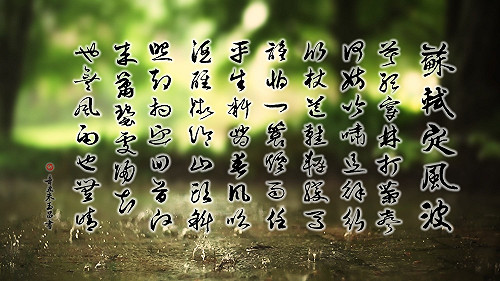 蘇軾定風波
莫聽穿林打葉聲
何妨吟嘯且徐行
竹杖芒鞋輕勝馬
誰怕一蓑煙雨任
平生料峭春風吹
酒醒微冷山頭斜
照卻相迎回首向
來蕭瑟處歸去
也無風雨也無晴